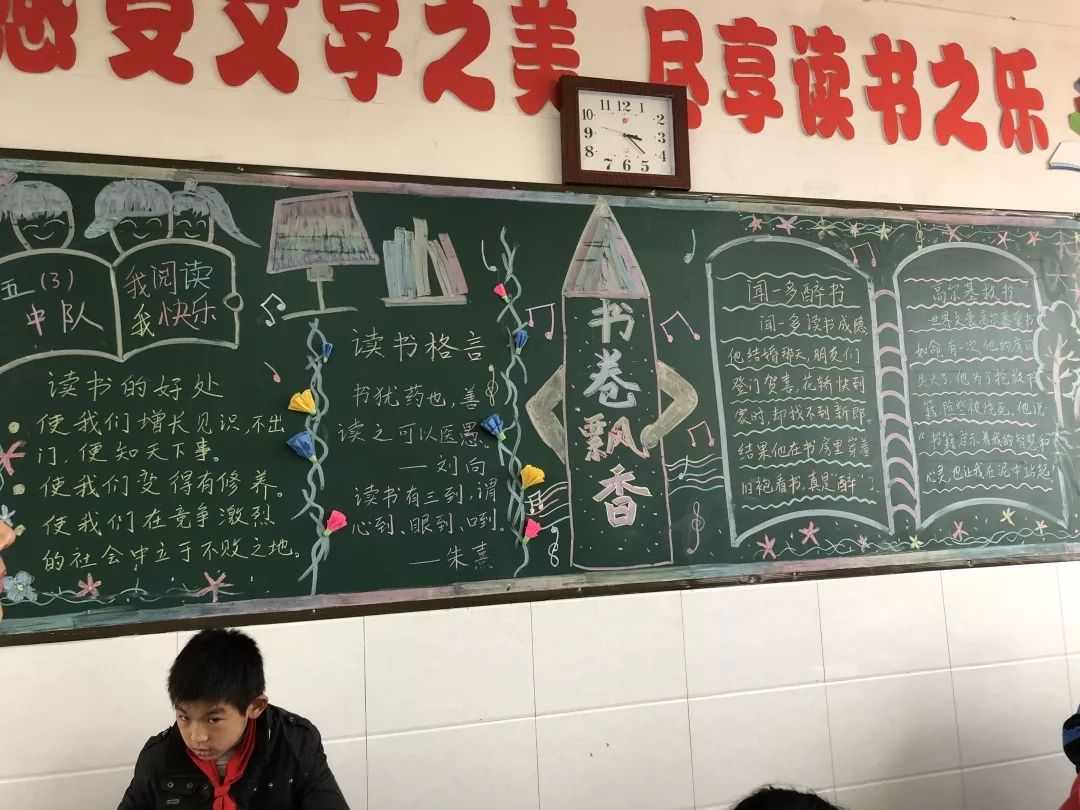 感受文学之美 尽享读书之乐
11 12 1
10 2
9 3
8 4
7 6 5
五(3)
中队
我阅读
我快乐
读书的好处
使我们增长见识,不出
门便知天下事。
使我们变得有修养。
使我们在竞争激烈
的社会中立于不败之地。
读书格言
书犹药也,善
读之可以医愚
—刘向
读书有三到,谓
心到、眼到、口到。
—朱熹
书卷飘香
闻一多醉书
闻一多读书成瘾
他结婚那天,朋友们
登门贺喜,花轿快到
家时,却找不到新郎。
结果他在书房里穿着
旧袍看书,真是“醉”了
高尔基救书
世界文豪高尔基爱书
如命,有一次,他的房间
失火了,他为了抢救书
籍,险些被烧死。他说
“书籍启示着我的智慧和
心灵,也让我在泥中站起!